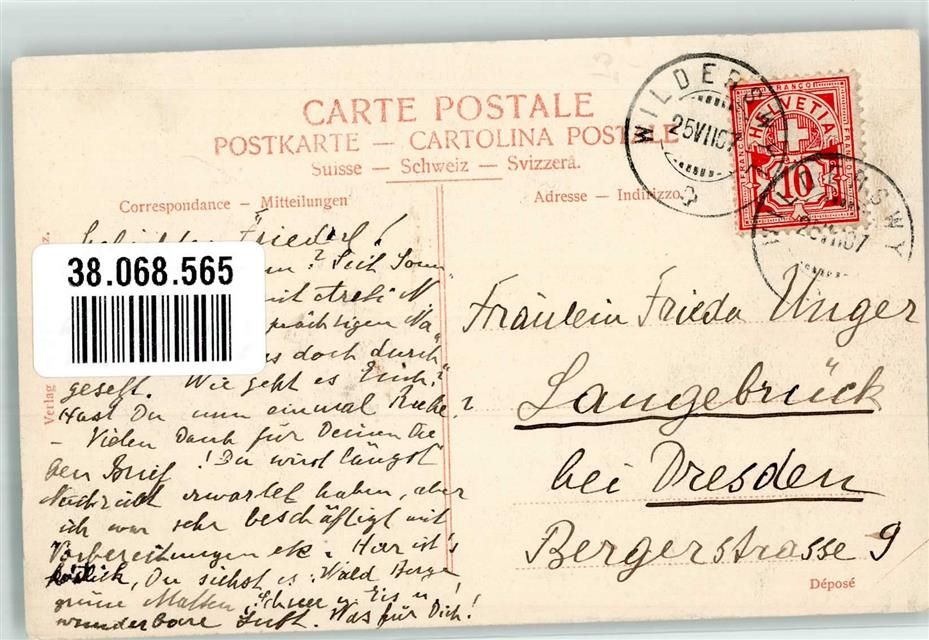 CARTE POSTALE
POSTKARTE — CARTOLINA POSTALE
Suisse — Schweiz — Svizzera.
WILDERSWYL
25 VII 07
FRANCO
HELVETIA
FRANCO
FRANCO
10
WILDERSWYL
25 VII 07
Correspondance — Mitteilungen
Adresse — Indirizzo
Friedel!
38.068.565
? Seit Sonn
mit
prächtigen Na
doch durch
gesetzt. Wie geht es Erich?
Hast Du nun einmal Ruhe?
— Vielen Dank für Deinen lie
ben Brief! Du wirst längst
Nachricht erwartet haben, aber
ich war sehr beschäftigt mit
Vorbereitungen etc. Hier ist's
köstlich, Du siehst es: Wald Berge
grüne Matten, Schnee u Eis u
wunderbare Luft. Was für Dich!
Fräulein Frieda Unger
Langebrück
bei Dresden
Bergerstrasse 9
Déposé
Verlag